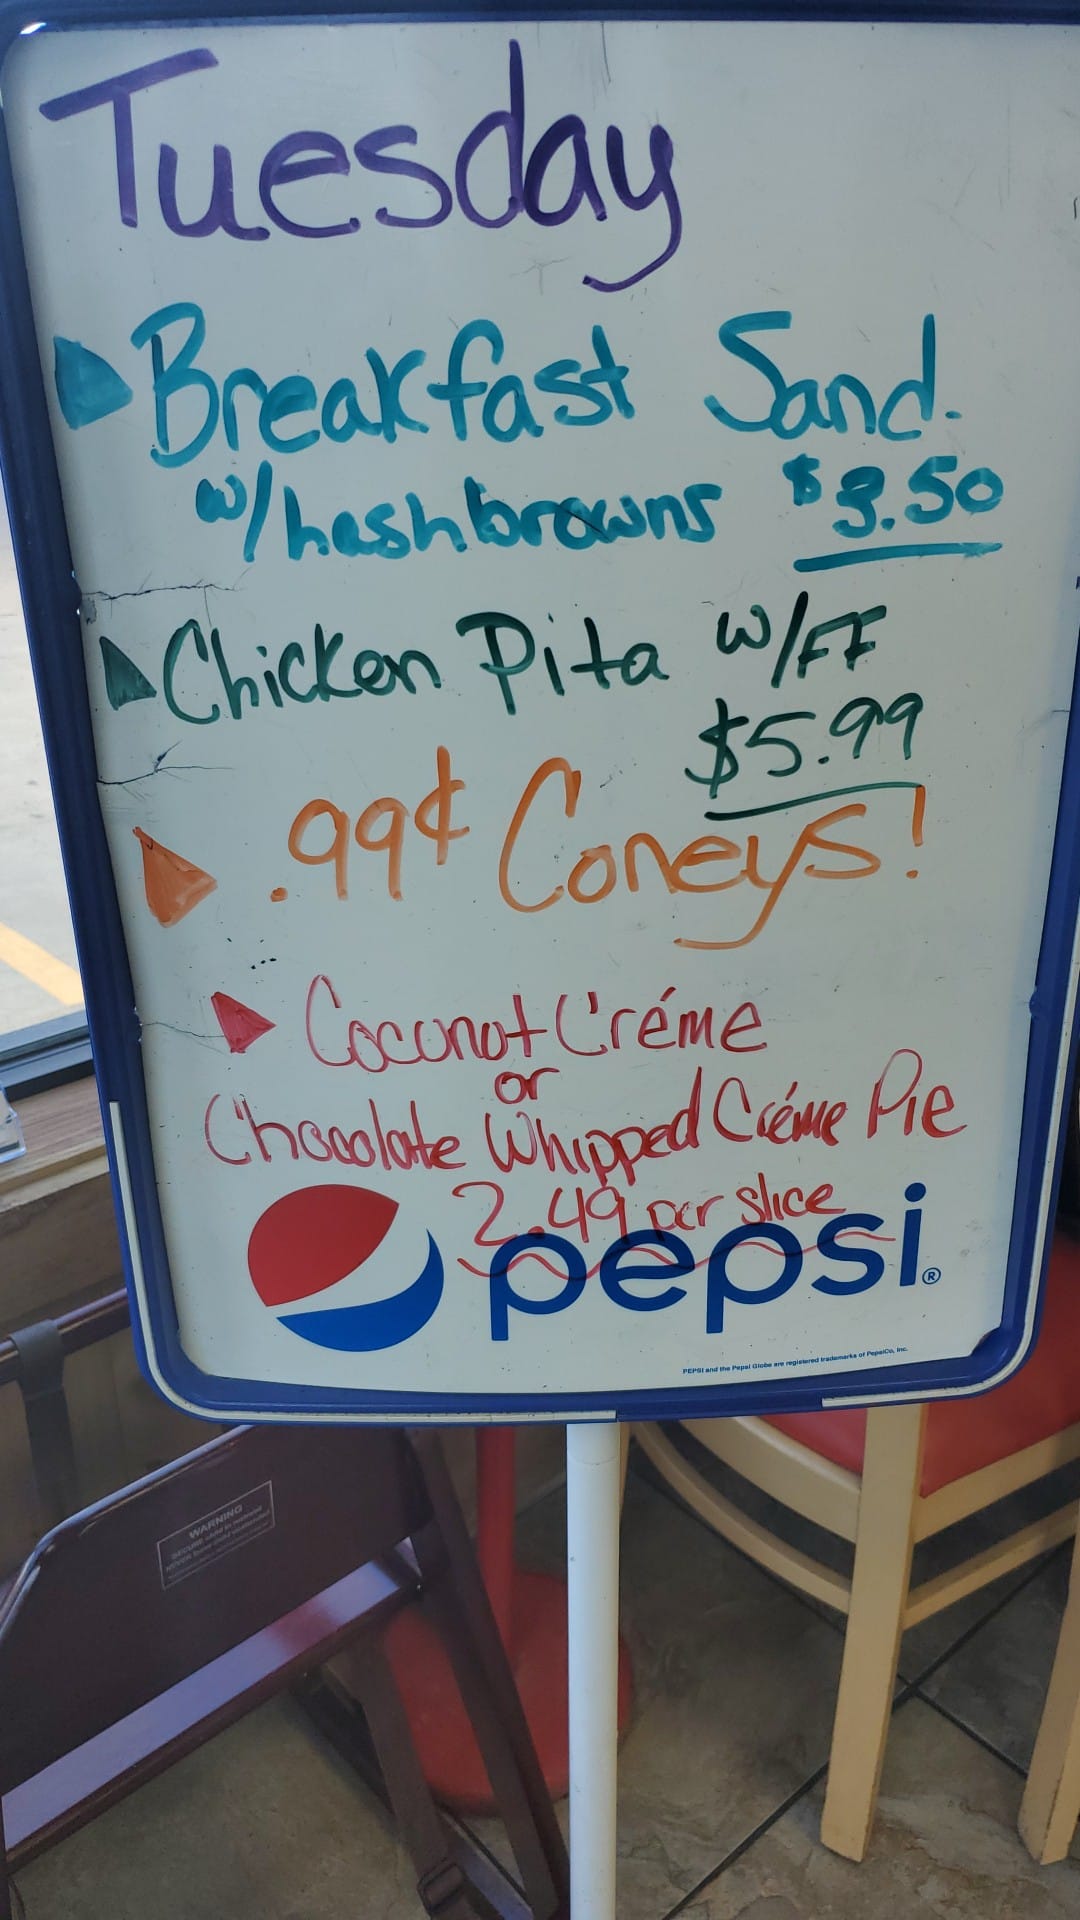 Tuesday
Breakfast Sand.
w/hashbrowns $3.50
Chicken Pita w/FF
$5.99
.99¢ Coneys!
Coconut Créme
or
Chocolate Whipped Créme Pie
2.49 per slice
pepsi®
PEPSI and the Pepsi Globe are registered trademarks of PepsiCo, Inc.
WARNING